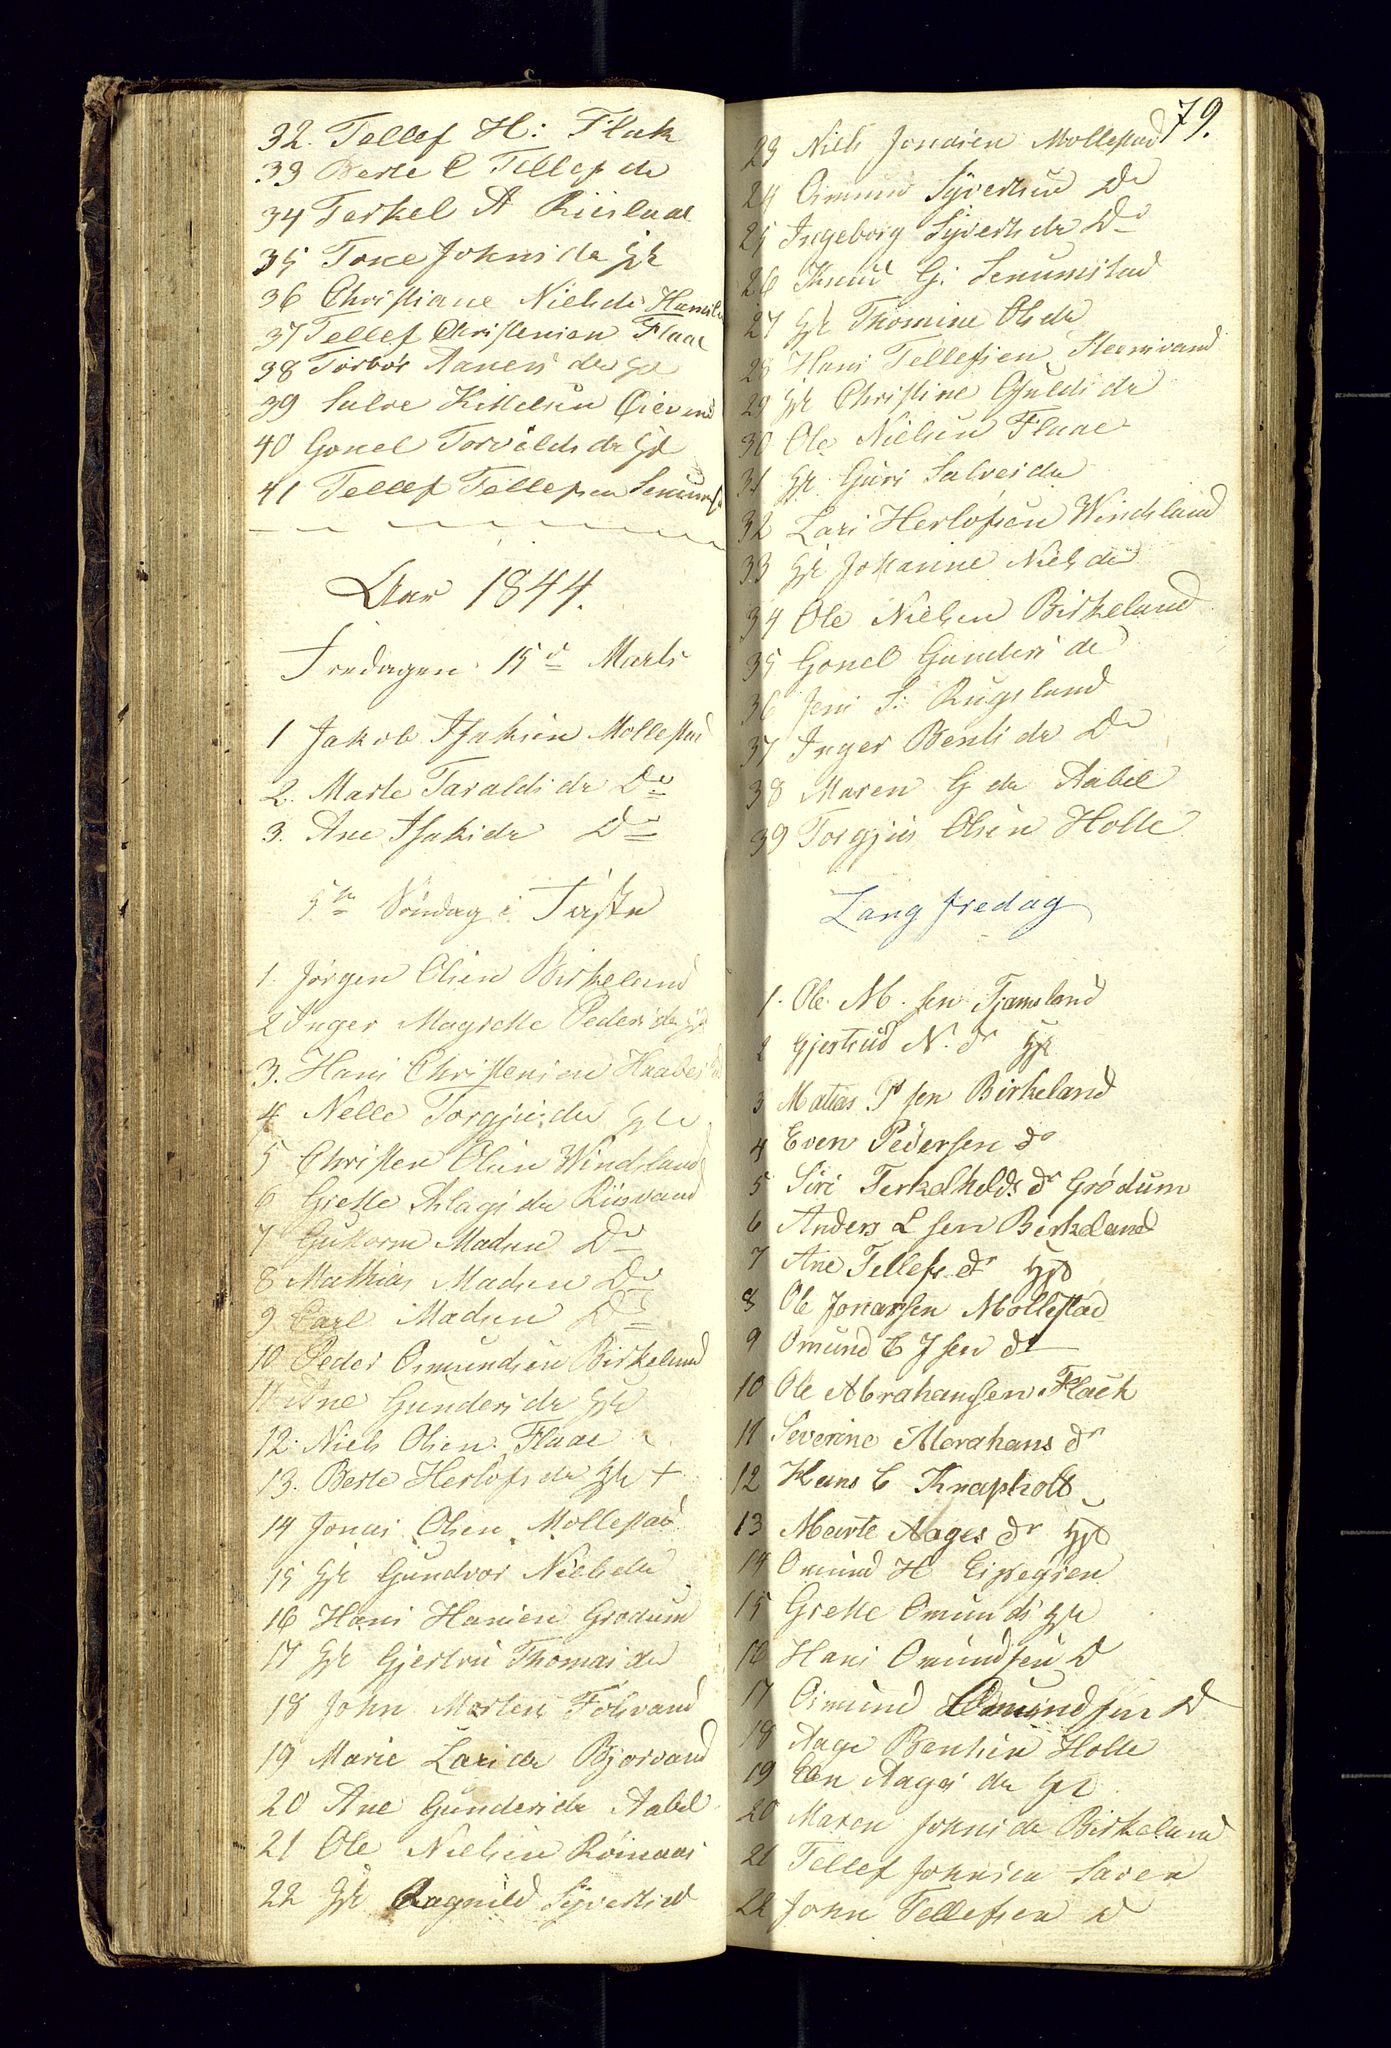 32. Tellef H: Flak
33 Berte C Tellefsdr
34 Terkel A Riislaae
35 Tone Johnsdr hst
36 Christiane Nielsdr
37 Tellef Christensen Flaae
38 Torbör Aanensdr hst
39 Salve Kittelsen Öievand
40 Gonel Torvildsdr hst
41 Tellef Tellefsen
Aar 1844.
Fredagen 15de Marts
1 Jakob Isaksen Mollestad
2. Marte Taraldsdr Do
3. Ane Isaksdr Do
5te Söndag i Faste
1. Jörgen Olsen Birkeland
2 Inger Magrette Pedersdr hst
3. Hans Christensen
4 Nelle Torgjusdr hst
5 Christen Olsen Windsland
6 Grette Aslagsdr Riisvand
7 Guttorm Madsen Do
8 Mathias Madsen Do
9 Carl Madsen Do
10 Peder Osmundsen Birkeland
11 Ane Gundersdr hst
12. Niels Olsen Flaae
13. Berte Herlofsdr hst +
14 Jonas Olsen Mollestad
15 hst Gundvor Nielsdr
16 Hans Hansen Grödum
17 hst Gjertru Thomasdr
18 John Mortens Fosvand
19 Marie Larsdr Bjorvand
20 Ane Gundersdr Aabel
21 Ole Nielsen Röinaas
22 hst Ragnild Syvertsd
79.
23 Niels Jonasen Mollestad
24 Osmund Syvertsen Do
25 Ingeborg Syvertsdr Do
26 Knud G: Senumstad
27 hst Thomine Olsdr
28 Hans Tellefsen
29 hst Christine Guldsdr
30 Ole Nielsen Flaae
31 hst Guri Salvesdr
32 Lars Herlofsen Windsland
33 hst Johanne Nielsdr
34 Ole Nielsen Birkeland
35 Gonel Gundersdr
36 Jens S: Rugsland
37 Inger Bentsdr Do
38 Maren G dr Aabel
39 Torgjus Olsen Holte
Langfredag
1. Ole M. sen Tjomsland
2 Gjertrud N. dr hst
3 Matias P sen Birkeland
4 Even Pedersen do
5 Siri Terkelhelds dr Grödum
6 Anders L sen Birkeland
7 Ane Tellefs dr hst
8 Ole Jonassen Mollestad
9 Omund E J sen do
10 Ole Abrahamsen Flaek
11 Severine Abrahams dr
12 Hans C Knapholt
13 Marte Aages dr hst
14 Omund H
15 Grette Omunds hst
16 Hans Omundsen D
17 Osmund Omundsen D
18 Aage Bentsen Holte
19 Aagesdr hst
20 Maren Johnsdr Birkeland
21 Tellef Johnsen Saren
22 John Tellefsen D